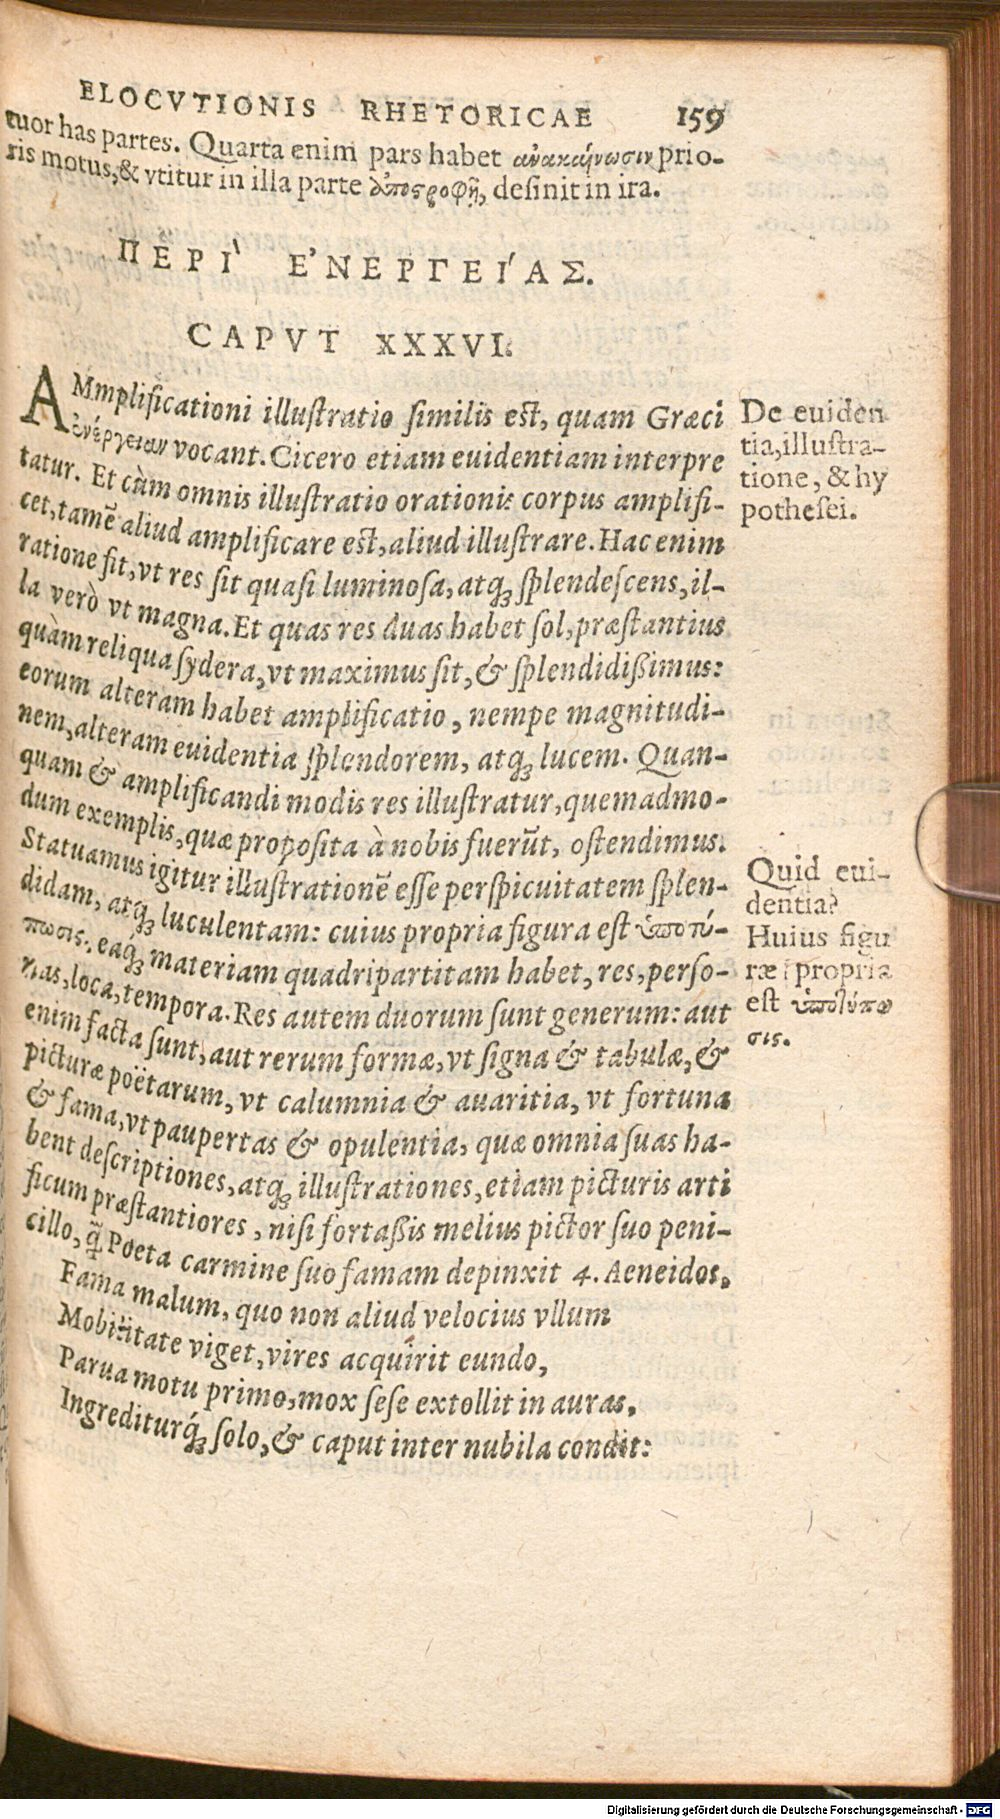 ELOCVTIONIS RHETORICAE 159
tuor has partes. Quarta enim pars habet ἀνακαίνωσιν prio-
ris motus, & vtitur in illa parte ἀποστροφῇ, desinit in ira.
ΠΕΡΙ` Ε᾿ΝΕΡΓΕΙ´ΑΣ.
CAPVT XXXVI.
AMmplificationi illustratio similis est, quam Græci
ἐνέργειαν vocant. Cicero etiam euidentiam interpre
tatur. Et cùm omnis illustratio orationis corpus amplifi-
cet, tamẽ aliud amplificare est, aliud illustrare. Hac enim
ratione fit, vt res sit quasi luminosa, atq́ꝫ splendescens, il-
la verò vt magna. Et quas res duas habet sol, præstantius
quàm reliqua sydera, vt maximus sit, & splendidißimus:
eorum alteram habet amplificatio, nempe magnitudi-
nem, alteram euidentia splendorem, atq́ꝫ lucem. Quan-
quam & amplificandi modis res illustratur, quemadmo-
dum exemplis, quæ proposita à nobis fuerũt, ostendimus.
Statuamus igitur illustrationẽ esse perspicuitatem splen-
didam, atq́ꝫ luculentam: cuius propria figura est ὑποτύ-
πωσις: eaq́ꝫ materiam quadripartitam habet, res, perso-
nas, loca, tempora. Res autem duorum sunt generum: aut
enim facta sunt, aut rerum formæ, vt signa & tabulæ, &
picturæ poëtarum, vt calumnia & auaritia, vt fortuna
& fama, vt paupertas & opulentia, quæ omnia suas ha-
bent descriptiones, atq́ꝫ illustrationes, etiam picturis arti
ficum præstantiores, nisi fortaßis melius pictor suo peni-
cillo, q̃ Poeta carmine suo famam depinxit 4. Aeneidos.
Fama malum, quo non aliud velocius vllum
Mobilitate viget, vires acquirit eundo,
Parua motu primo, mox sese extollit in auras,
Ingrediturq́ꝫ solo, & caput inter nubila condit:
De euiden
tia, illustra-
tione, & hy
pothesei.
Quid eui-
dentia?
Huius figu
ræ propria
est ὑποτύπω
σις.
Digitalisierung gefördert durch die Deutsche Forschungsgemeinschaft - DFG